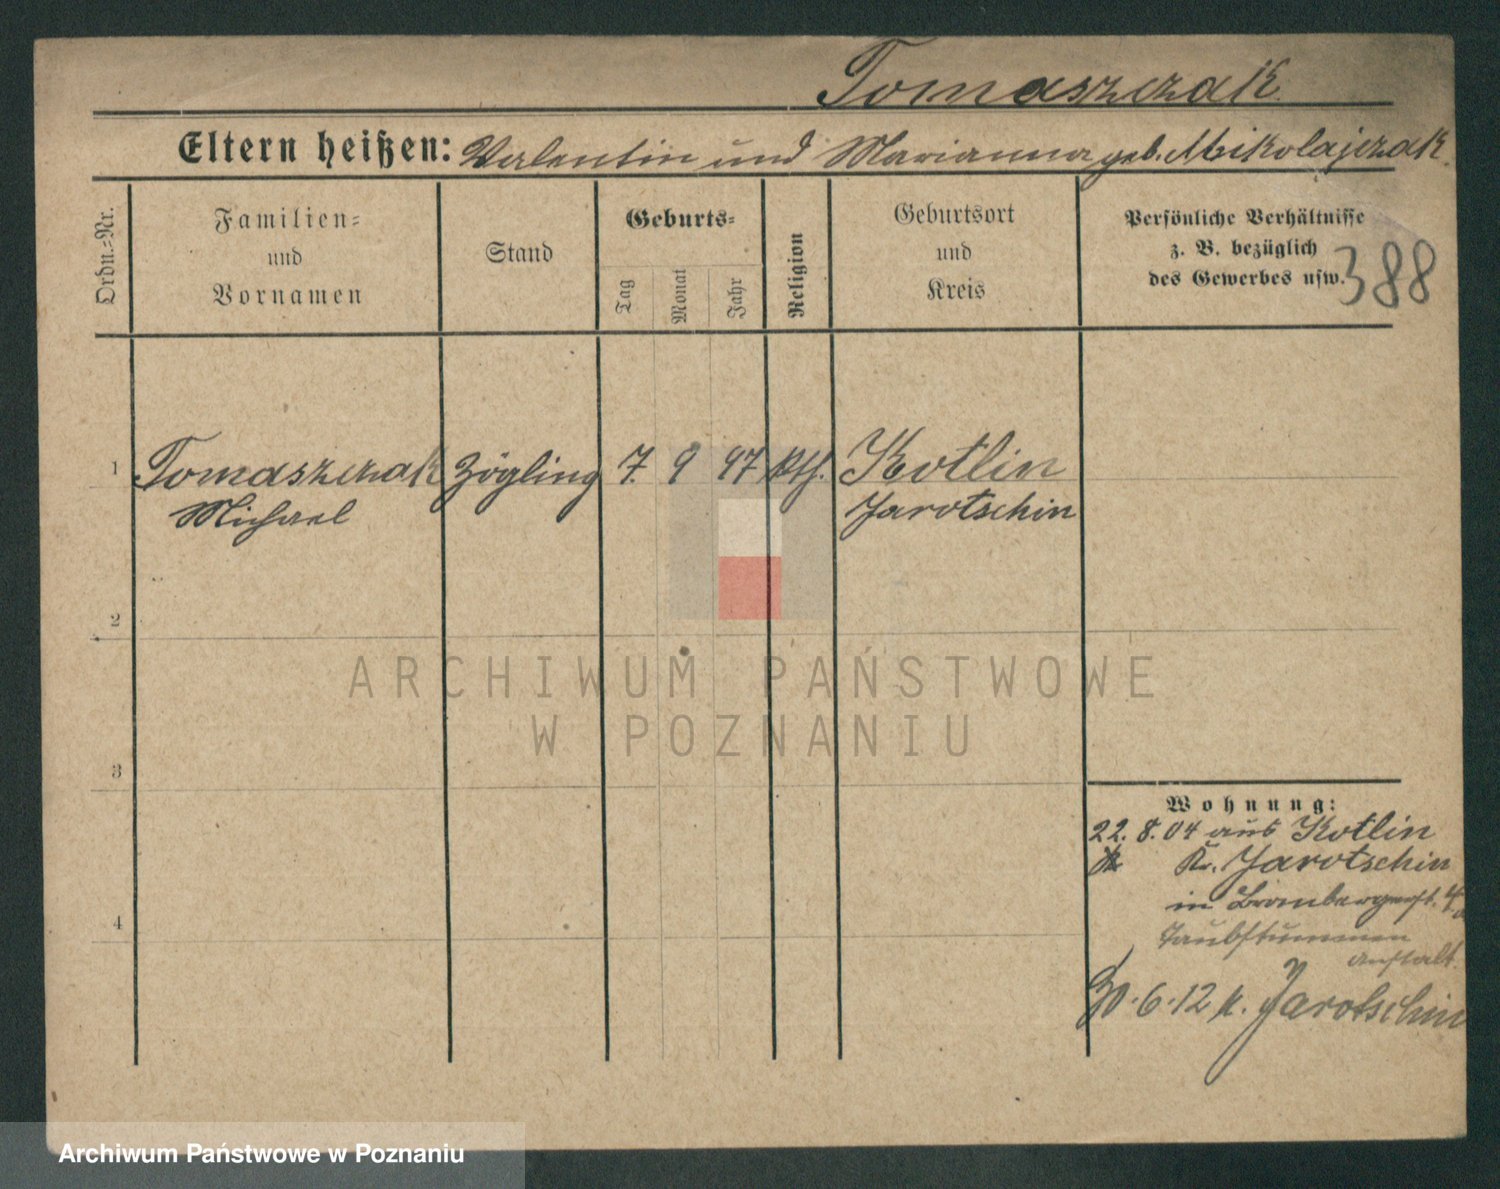 Tomaszczak
Eltern heißen: Valentin und Marianna geb. Mikolajczak.
Ordn.=Nr.
Familien=
und
Vornamen
Stand
Geburts=
Tag
Monat
Jahr
Religion
Geburtsort
und
Kreis
Persönliche Verhältnisse
z. B. bezüglich
des Gewerbes usw.
388
1 Tomaszczak Zögling 7. 9 97 kth. Kotlin
Michael Jarotschin
2
ARCHIWUM PAŃSTWOWE
W POZNANIU
3
4
Wohnung:
22. 8. 04 aus Kotlin
Kr. Jarotschin
in Brombergerst. 4a
Taubstummen
anstalt.
30·6·12 n. Jarotschin
Archiwum Państwowe w Poznaniu